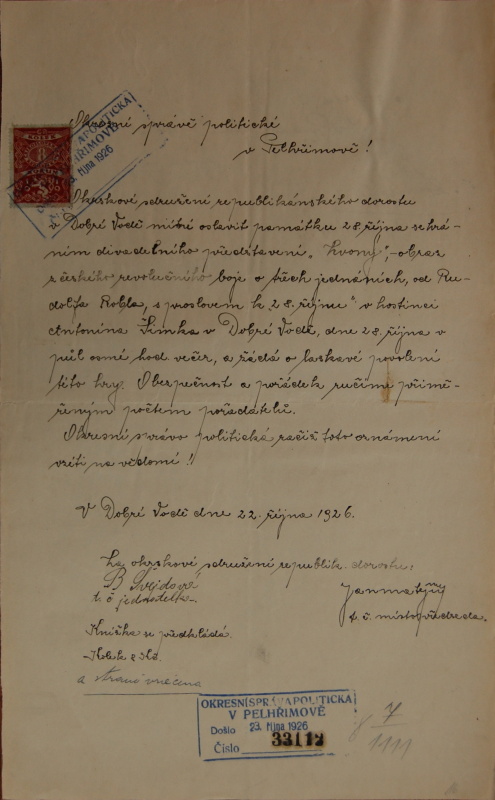 Okresní správě politické
v Pelhřimově!
Okrskové sdružení republikánského dorostu
v Dobré Vodě míní oslaviti památku 28. října sehrá-
ním divadelního představení „Zvony", - obraz
z českého revolučního boje o třech jednáních, od Ru-
dolfa Robla, s proslovem k „28. říjnu" v hostinci
Antonína Šimka v Dobré Vodě, dne 28. října v
půl osmé hod. večer, a žádá o laskavé povolení
této hry. Obezpečnost a pořádek ručíme přimě-
řeným počtem pořadatelů.
Okresní správo politická račiž toto oznámení
vzíti na vědomí!!
V Dobré Vodě dne 22. října 1926.
Za okrskové sdružení republik. dorostu:
B. Švejdová
t. č. jednatelka.
t. č. místopředseda.
Knížka se předkládá.
Kolek 2 Kč.
OKRESNÍ SPRÁVA POLITICKÁ
V PELHŘIMOVĚ
Došlo 23. října 1926
Číslo 33112
7
1111